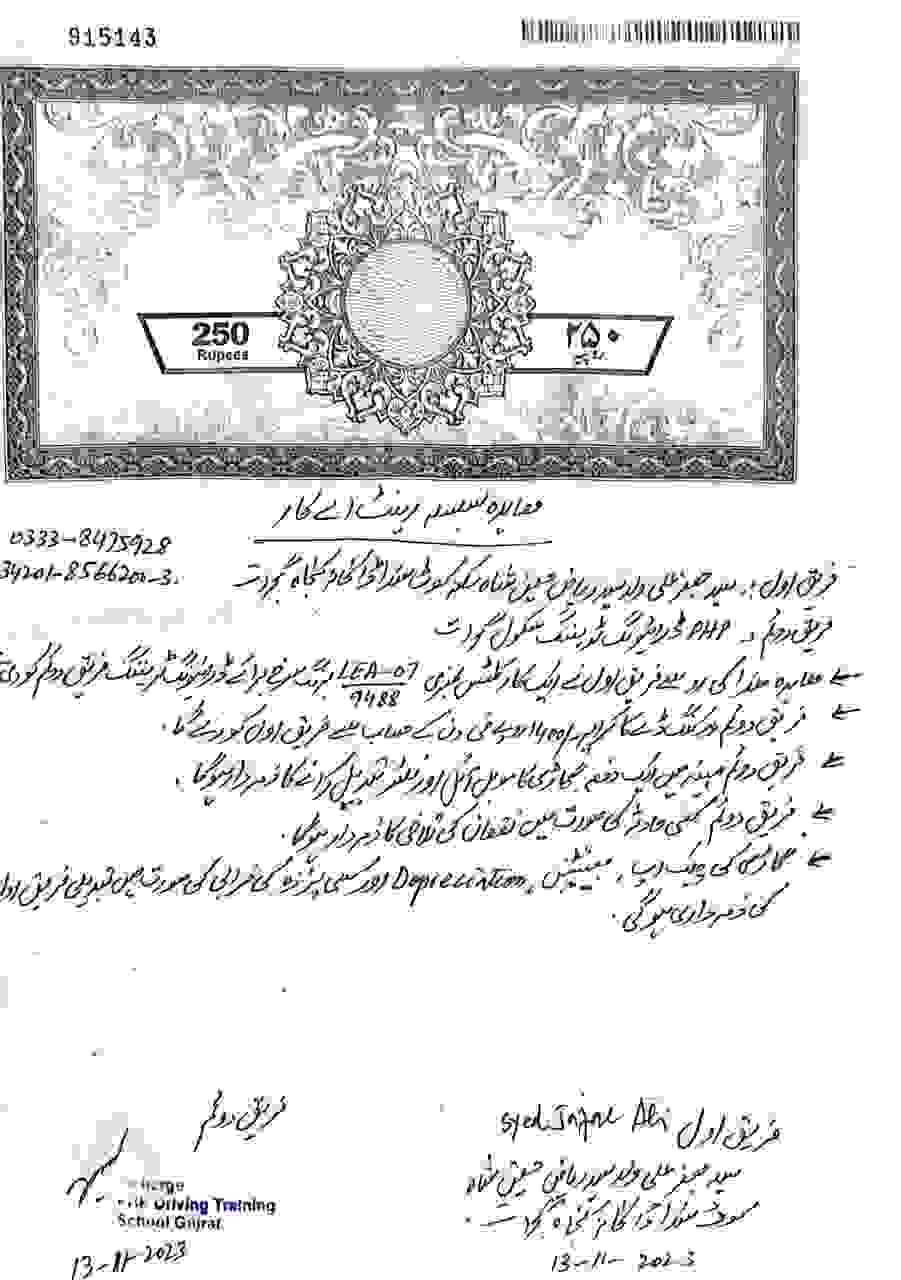 915143
250
Rupees
۲۵۰
روپے
معاہدہ نسبت رینٹ اے کار
0333-8475928
34201-8566200-3
فریق اول :۔ سید جعفر علی ولد سید ریاض حسین شاہ سکنہ کنجاہ گجرات
فریق دوئم :۔ PHP ڈرائیونگ ٹریننگ سکول گجرات
معاہدہ ھذا کی رو سے فریق اول نے ایک کار کلٹس نمبری LEA-07/9488 برنگ سرخ برائے ڈرائیونگ ٹریننگ فریق دوئم کو دی
فریق دوئم ورکنگ ڈے کا کرایہ 1400/ روپے فی دن کے حساب سے فریق اول کو دے گا۔
فریق دوئم مہینہ میں ایک دفعہ گاڑی کا موبل آئل اور فلٹر تبدیل کرانے کا ذمہ دار ہوگا۔
فریق دوئم کسی حادثہ کی صورت میں نقصان کی تلافی کا ذمہ دار ہوگا۔
گاڑی کی چیک اپ، مینٹیننس، Depreciation اور کسی پرزہ کی خرابی کی صورت میں تبدیلی فریق اول
کی ذمہ داری ہوگی۔
فریق اول Syed Jafar Ali
سید جعفر علی ولد سید ریاض حسین شاہ
کنجاہ گجرات
13-11-2023
فریق دوئم
Driving Training
School Gujrat
13-11-2023